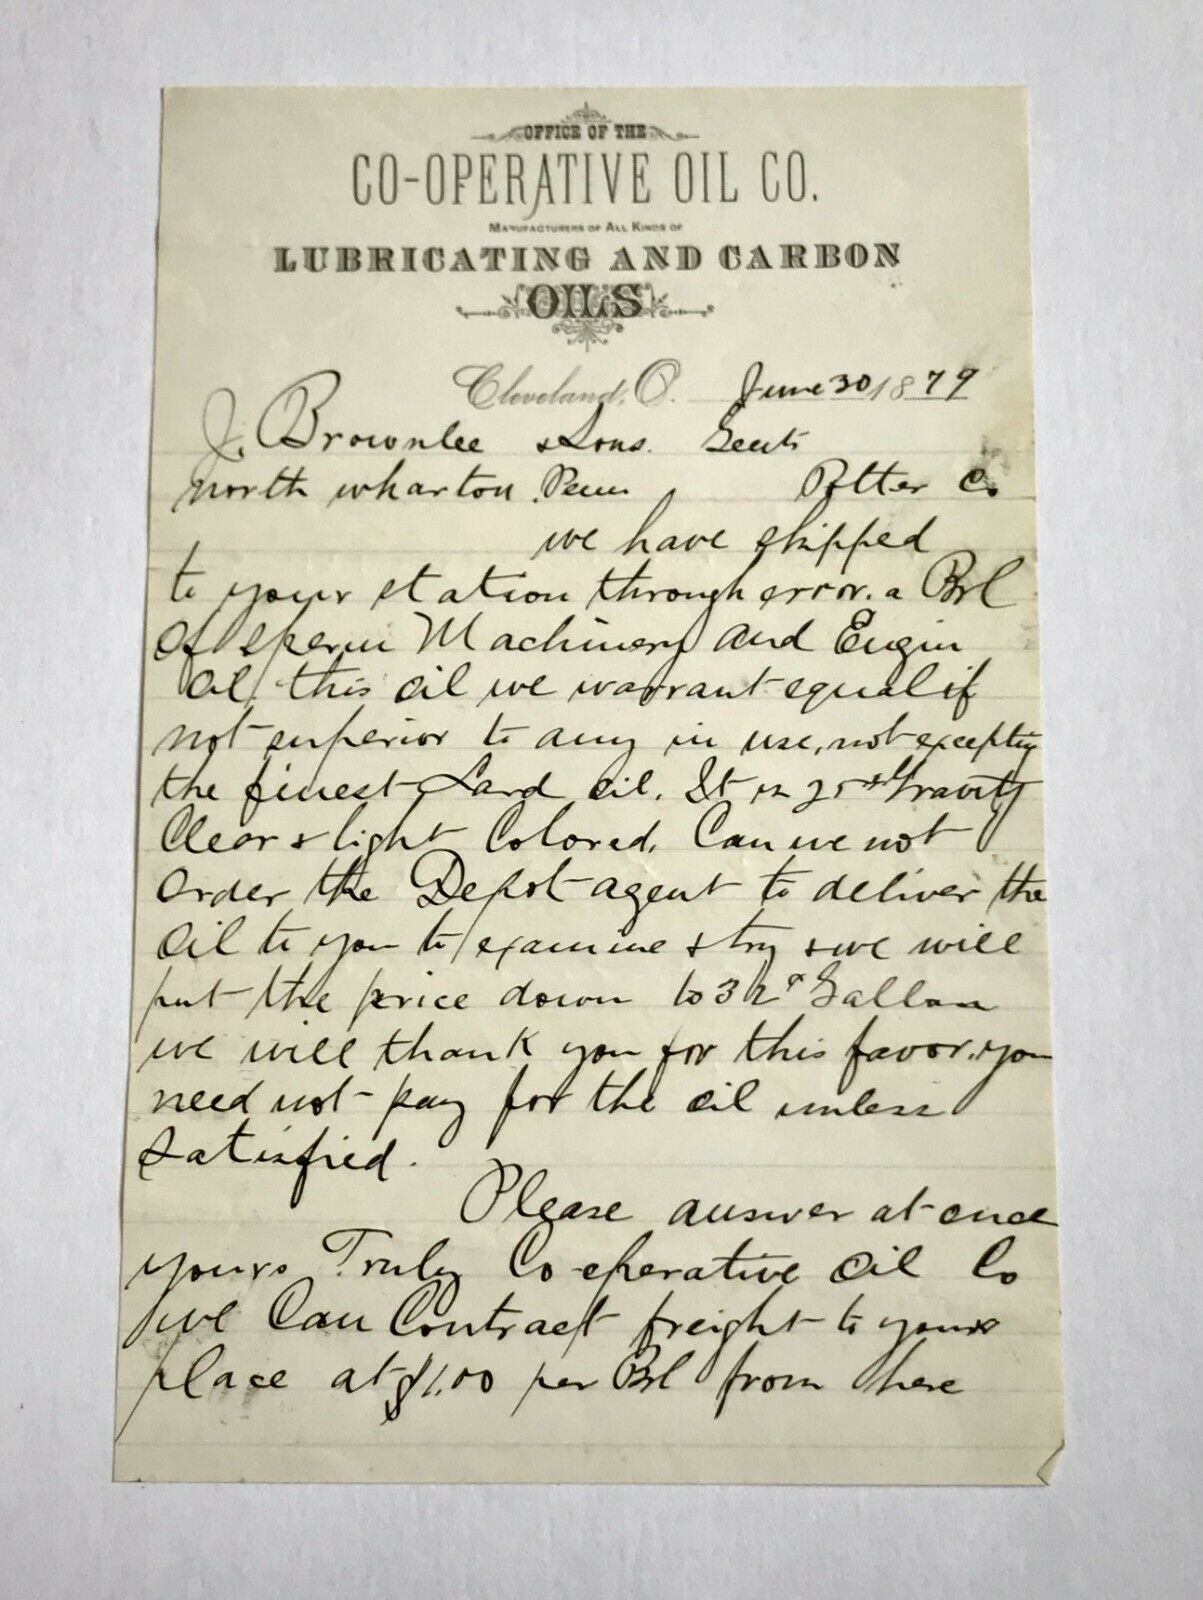 OFFICE OF THE
CO-OPERATIVE OIL CO.
MANUFACTURERS OF ALL KINDS OF
LUBRICATING AND CARBON
OILS
Cleveland, O. June 30 1879
J. Brownlee & Sons. Gents
north wharton Penn Potter Co
we have shipped
to your station through error. a Brl
of sperm Machinery and Engin
oil, this oil we warrant equal if
not superior to any in use, not excepting
the finest Lard oil. It is 25 Gravity
Clear & light Colored. Can we not
order the Depot agent to deliver the
oil to you to examine & try & we will
put the price down to 32 Gallon
we will thank you for this favor. you
need not pay for the oil unless
satisfied.
Please answer at once
yours Truly Co-operative Oil Co
we Can Contract freight to your
place at $1.00 per Brl from here